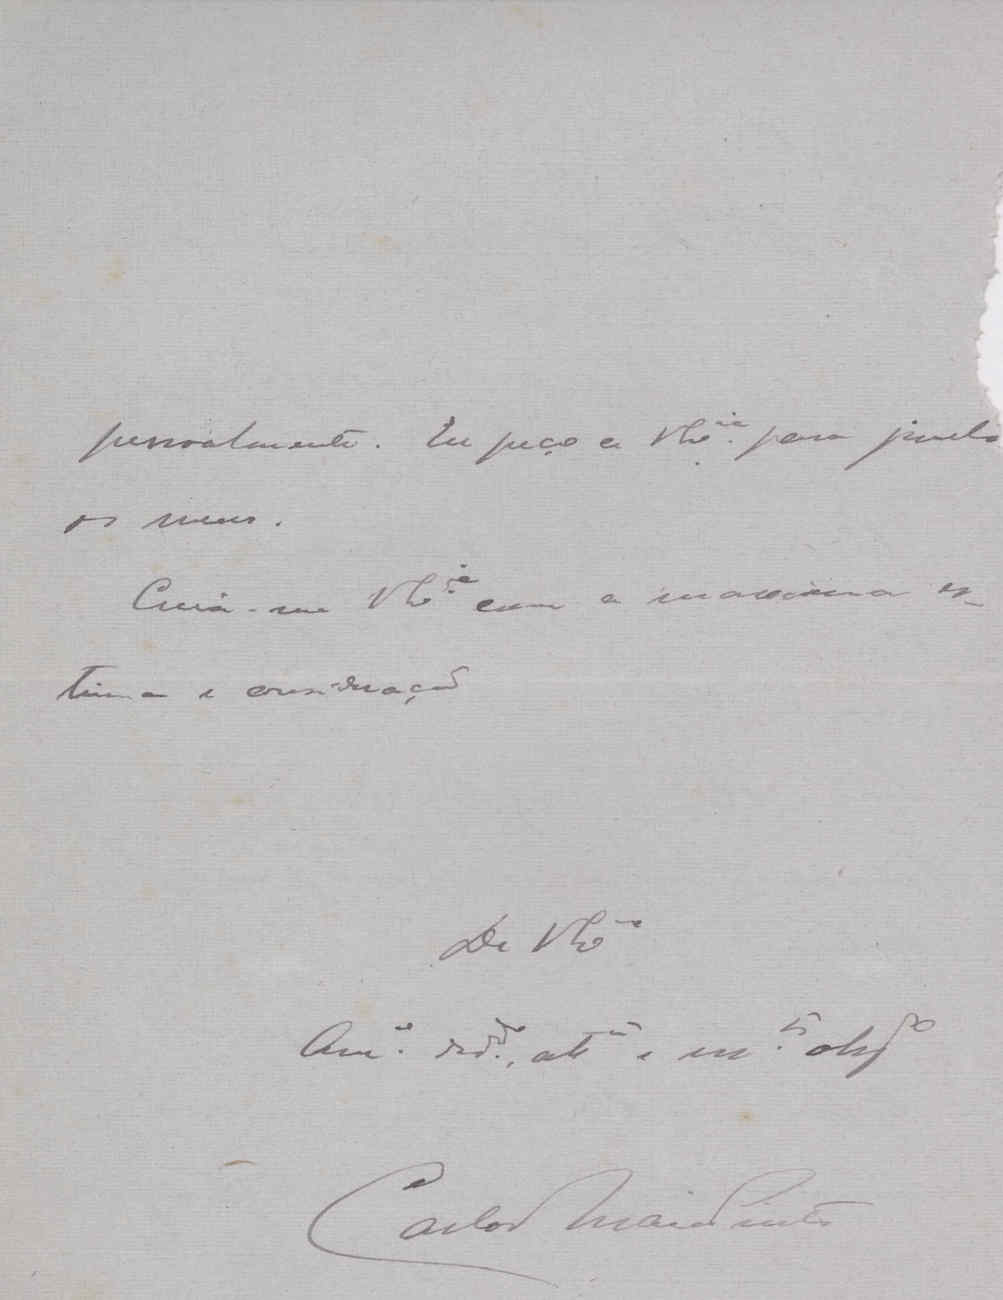 pessoalmente. Eu peço a V. Ex.cia para junto
os meus.
Creia-me V. Ex.cia com a maxima es-
tima e consideração
De V. Ex.cia
Am.o att.o e m.to obrg.do
Carlos Maia Pinto